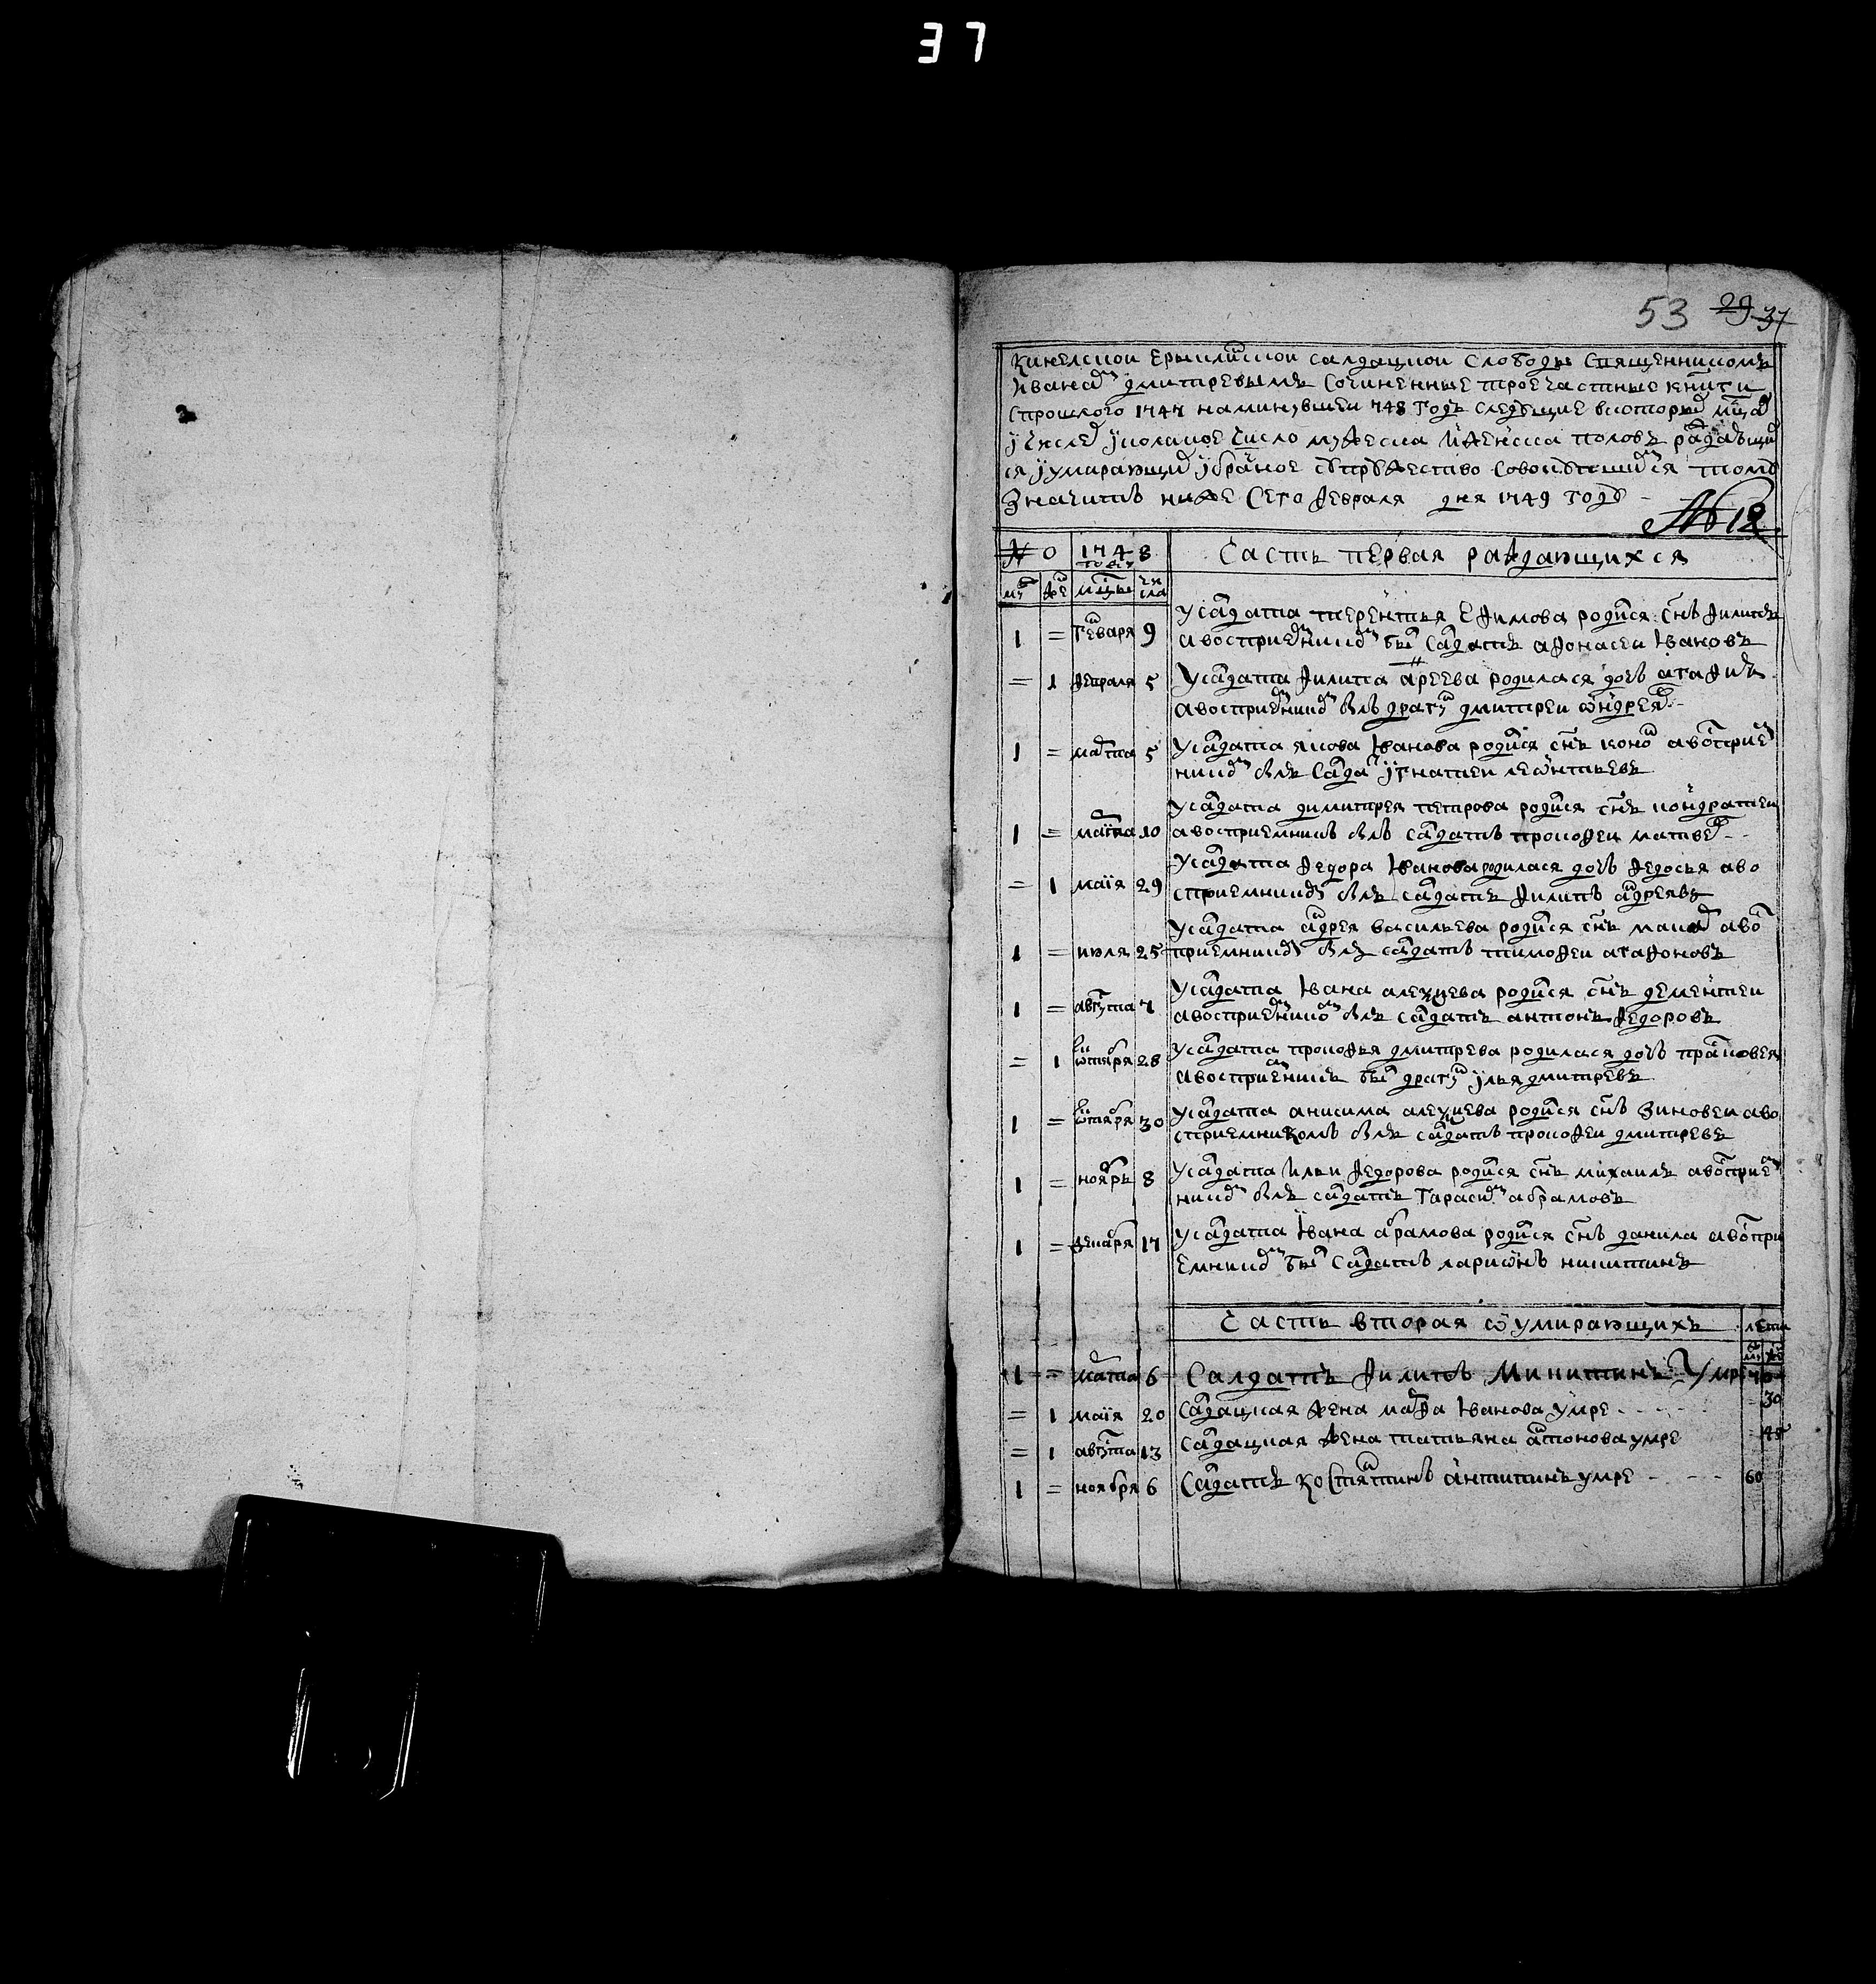 37
53 29 37
Кинелскои Ермилинскои салдацкои слободы священником
Иваном дмитревымъ сочиненные троечастные книги
с прошлого 1747 на минувшеи 748 годъ следующие в которых мцах
и числех и коликое число мужеска и женска полов раждающих
ся и умирающих и брачное супружество совокупившихся тому
значитъ ниже сего февраля дня 1749 году
№ 12
№ 0 1748 Часть первая раждающихся
муж же мцы числа
1 = генваря 9 У салдата терентья Ефимова родился снъ филипъ
а восприемником был салдатъ афонасеи Ивановъ
= 1 февраля 5 У салдата филипа арѣева родилася дочь агафия
а восприемником былъ драгун дмитреи ондреяв
1 = марта 5 У салдата якова Иванова родился снъ конон а восприем
ником былъ салдат игнатеи леонтьевъ
1 = марта 10 У салдата димитрея петрова родился снъ кондратеи
а восприемникъ былъ салдатъ прокофеи матвеев
= 1 маїя 29 У салдата федора Иванова родилася дочь федосья а во
сприемникомъ былъ салдатъ филипъ андреявъ
1 = июля 25 У салдата андрея васильева родился снъ макар а вос
приемникомъ былъ салдатъ тимофеи агафоновъ
1 = августа 7 У салдата Ивана алексеева родился снъ дементеи
а восприемником былъ салдатъ антонъ федоровъ
= 1 октября 28 У салдата прокофья дмитрева родилася дочь прасковея
а восприемникъ был драгун илья дмитревъ
1 = октября 30 У салдата анисима алексеева родился снъ Зиновеи а во
сприемникомъ былъ салдатъ прокофеи дмитревъ
1 = ноябръ 8 У салдата Ильи федорова родился снъ михаилъ а восприем
ником былъ салдатъ Тарасим абрамовъ
1 = декабря 17 У салдата Ивана абрамова родился снъ данила а воспри
емником был салдатъ ларионъ никитинъ
Часть вторая о умирающихъ лета
муж же
1 = марта 6 Салдатъ филипъ Микитинъ Умре 70
= 1 маїя 20 Салдацкая жена марфа Иванова умре 30
= 1 августа 13 салдацкая жена татьяна антонова умре
1 = ноября 6 Салдатъ Костянтинъ антипинъ умре 60